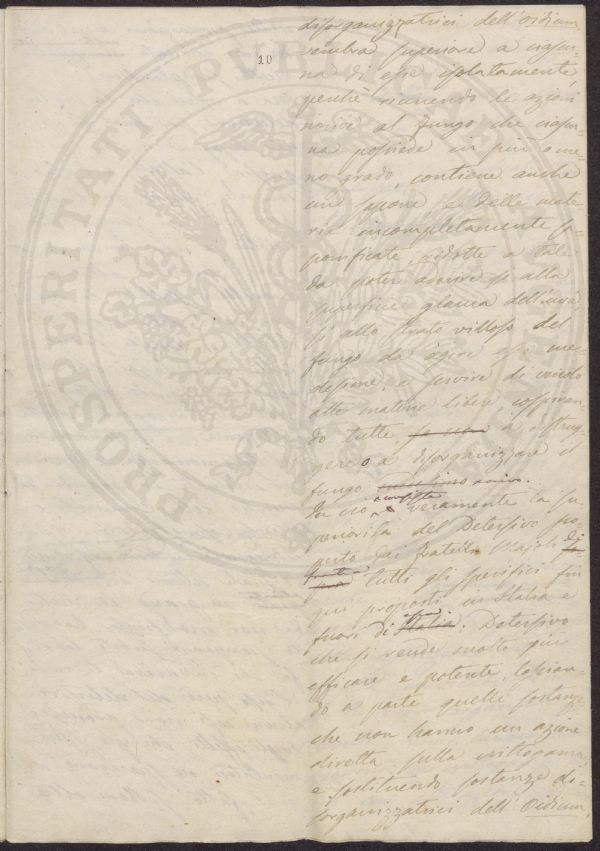 20
disorganizzatrici dell'Oidium,
sembra superiore a ciascu-
na di esse isolatamente,
perchè riunendo le azioni
nocive al fungo che ciascu-
na possiede in più o me-
no grado, contiene anche
un sapone e delle mate-
rie incompletamente sa-
ponificate, ridotte a tale
da poter aderire sì alla
superficie glauca dell'uva
sì allo strato villoso del
fungo da agire esse me-
desime, e servire di veicolo
alle materie libere, cospiran-
do tutte, a distrug-
gere o a disorganizzare il
fungo
In ciò consiste veramente la su-
periorità del Detersivo pro-
posto dai fratelli Majoli
tutti gli specifici fin
qui proposti in Italia e
fuori di essa. Detersivo
che si rende molto più
efficace e potente, lascian-
do a parte quelle sostanze
che non hanno un azione
diretta sulla crittogama
e sostituendo sostanze di-
sorganizzatrici dell'Oidium,
PROSPERITATI PUBLICAE